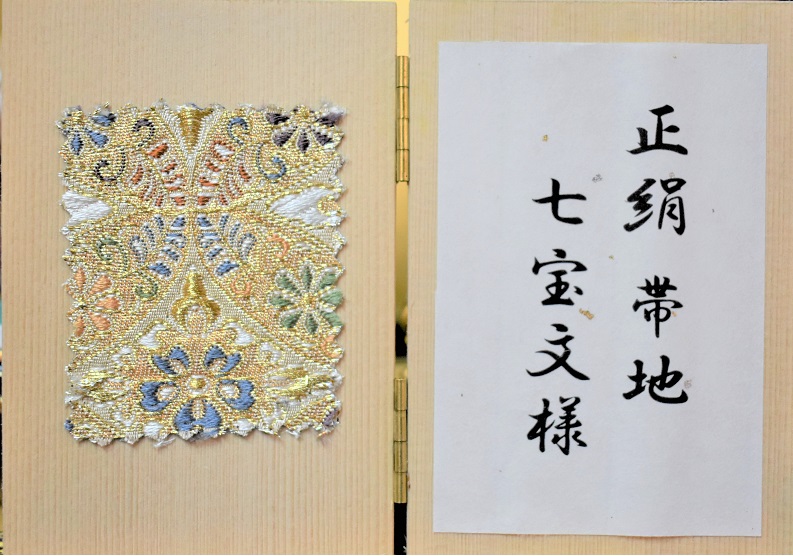 正絹 帯地
七宝文様